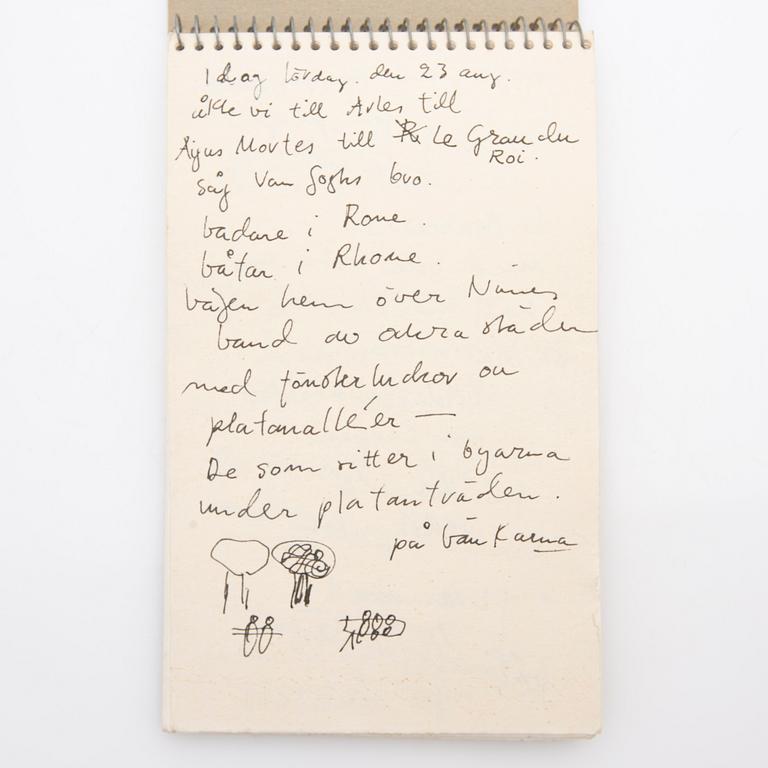 Idag lördag. den 23 aug.
åkte vi till Arles till
Aigus Mortes till Le Grau du
Roi.
såg Van Goghs bro.
badare i Rone.
båtar i Rhone.
vägen hem över Nimes
band av städer
med fönsterluckor ou
platanalléer —
De som sitter i byarna
under platanträden.
på bänkarna